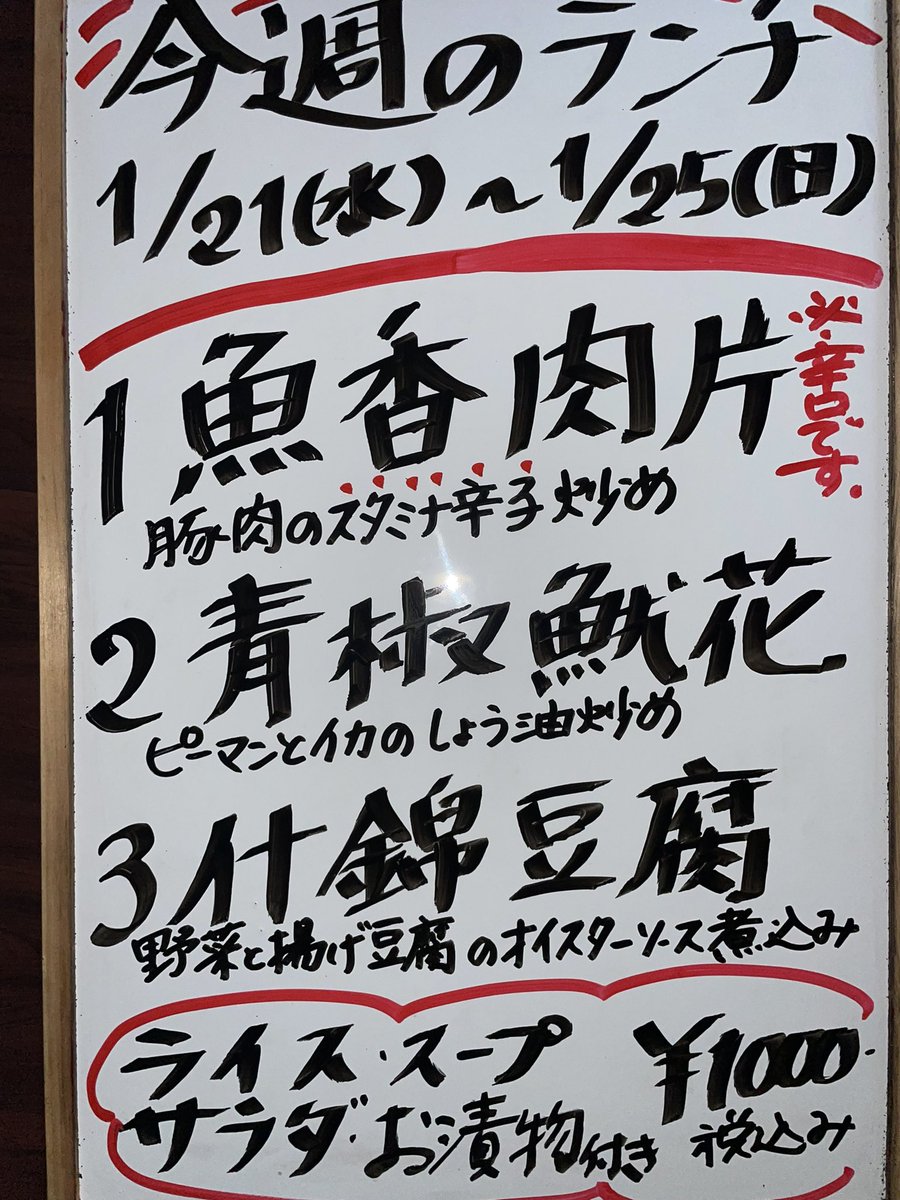 今週のランチ
1/21(水)～1/25(日)
1 魚香肉片
※辛口です。
豚肉のスタミナ辛子炒め
2 青椒魷花
ピーマンとイカのしょう油炒め
3 什錦豆腐
野菜と揚げ豆腐のオイスターソース煮込み
ライス・スープ ¥1000-
サラダ・お漬物付き 税込み